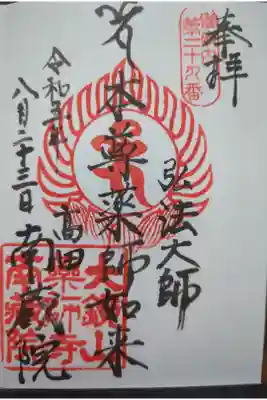 奉拝
御府内
第二十九番
弘法大師
本尊薬師如来
高田
南蔵院
令和
八月二十三日
大鏡山
薬師寺
南蔵院